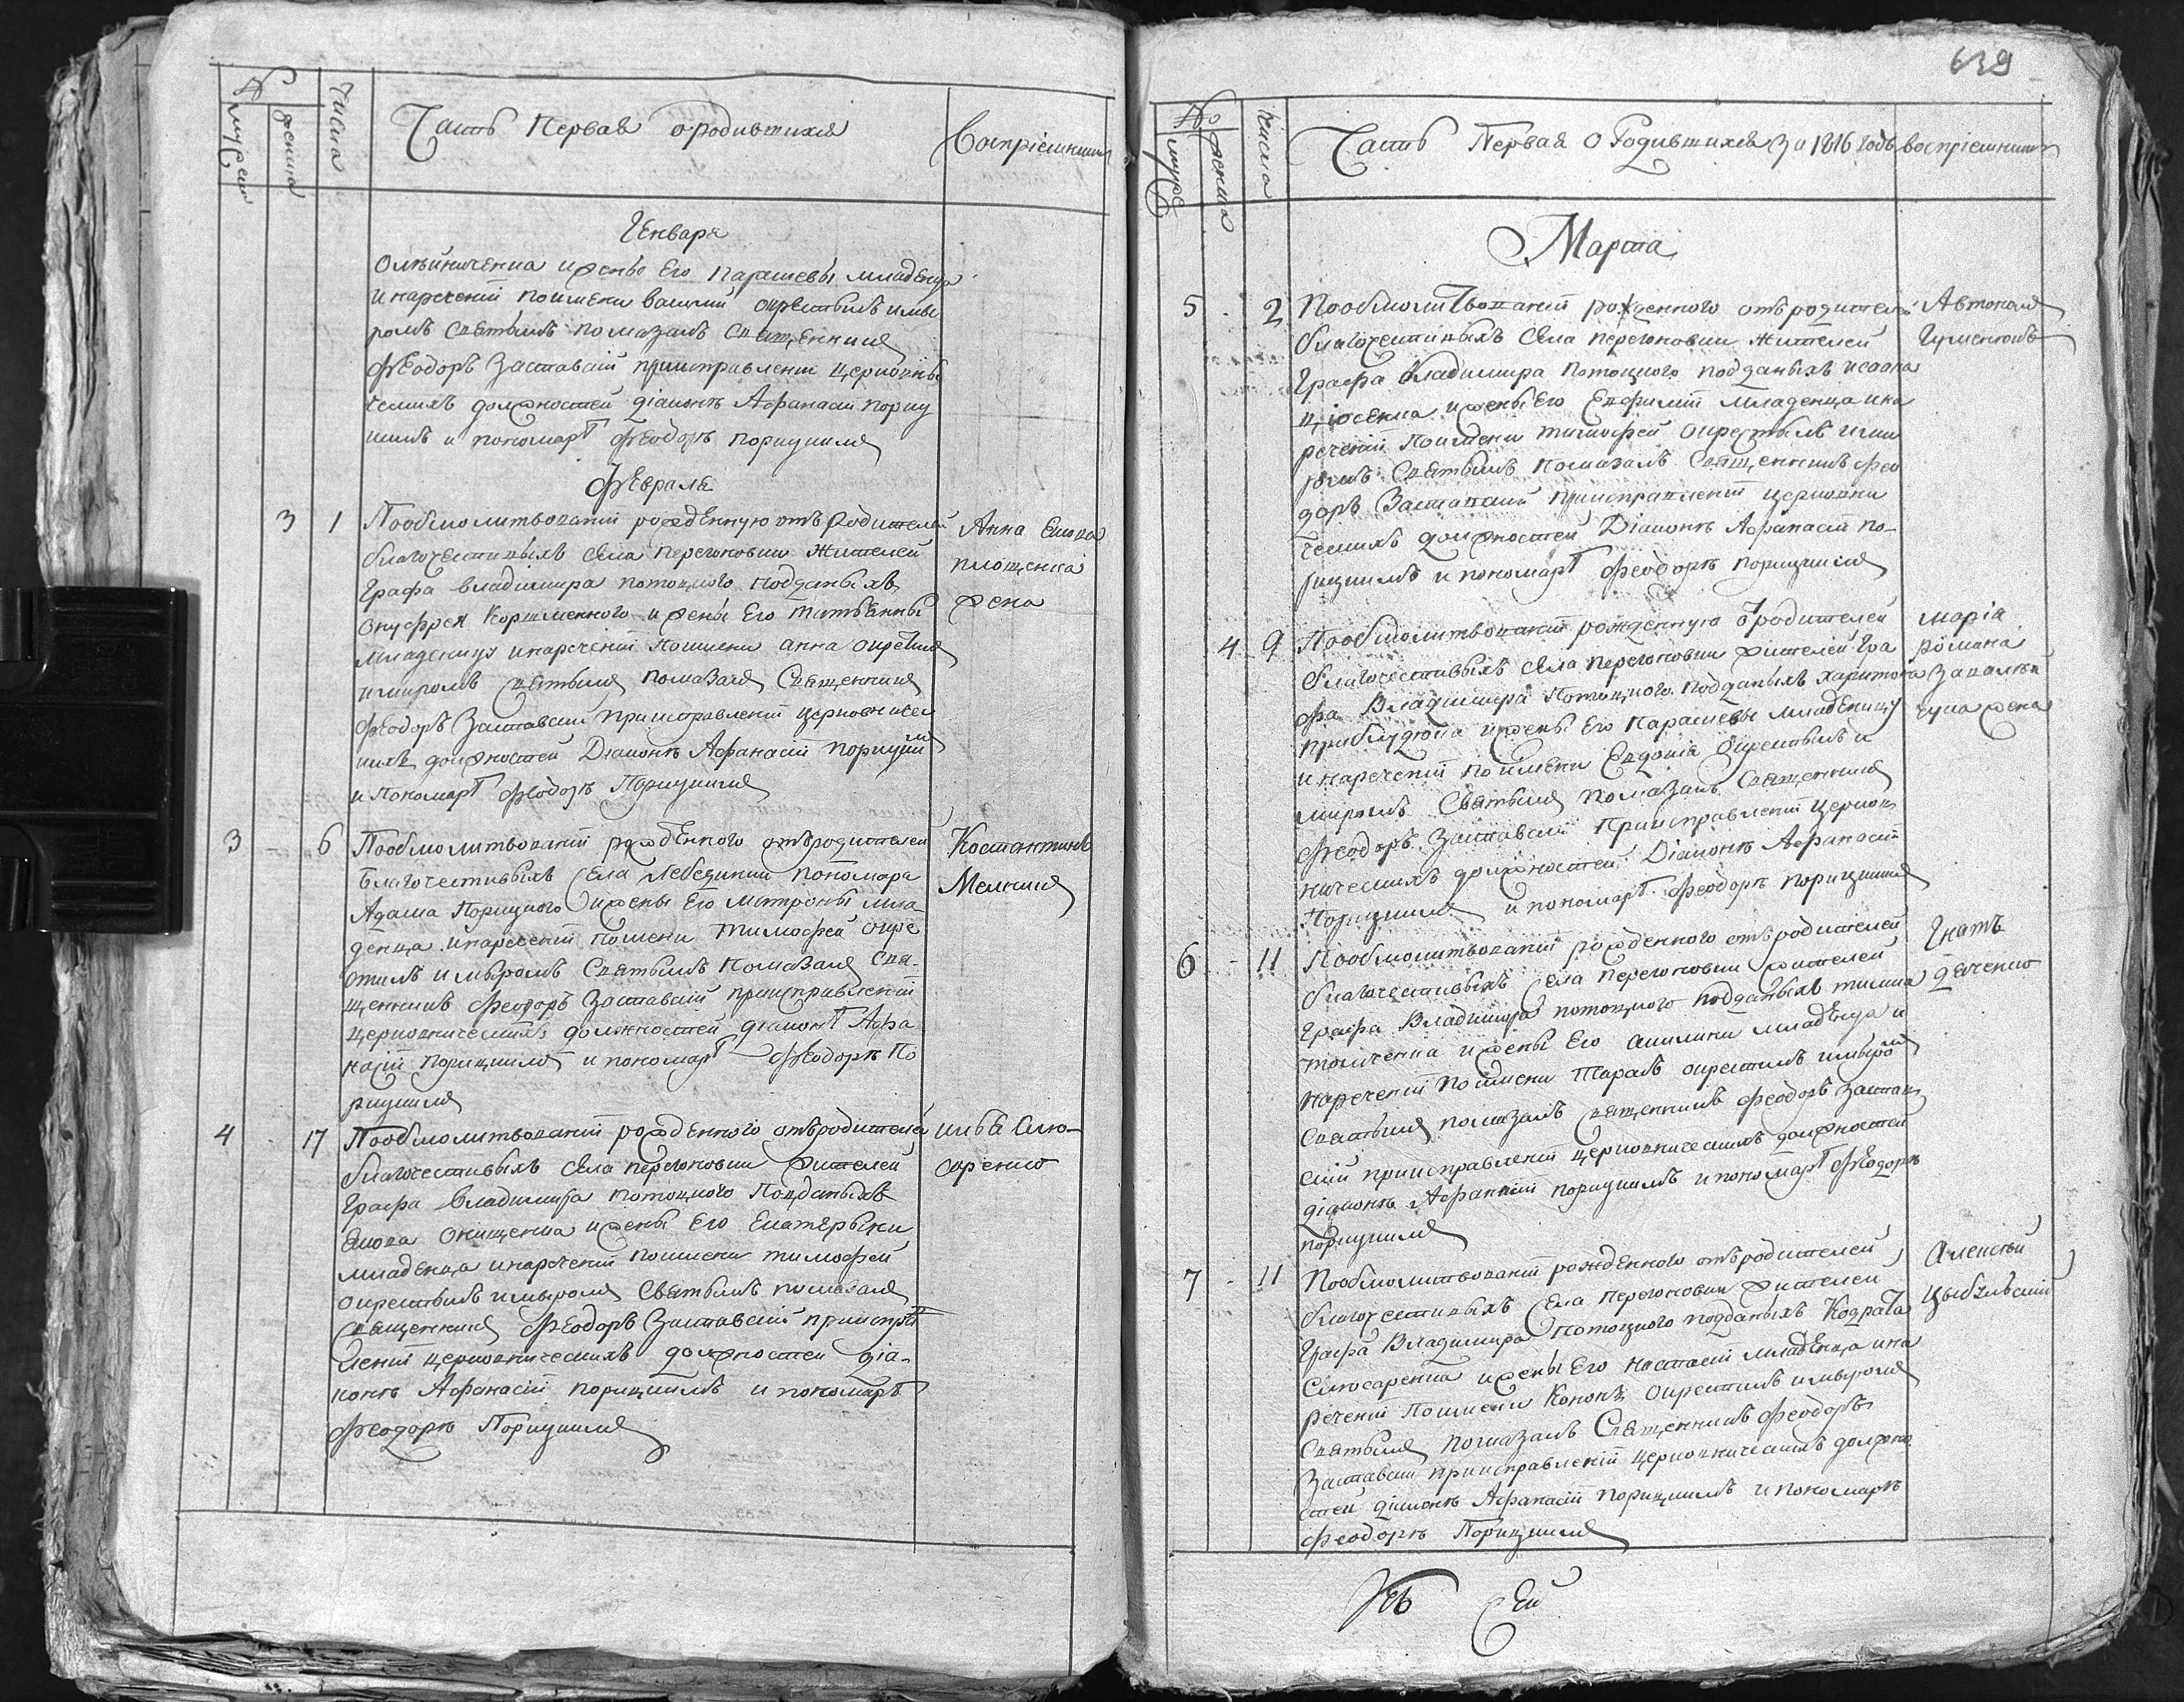 №
мужеск
женска
числа
Часть Первая о родившихся
Воспріемники
Генваря
Олѣйниченка и жены Его Парашевы младенца
и нареченій поимени василій окрестилъ и мы
ромъ святымъ помазалъ священникъ
Феодоръ Заставскій приисправленіи церковны
ческихъ должностей діаконъ Афанасій Пориц
кимъ и пономарѣ Феодоръ Порицкимъ
Февраля
3 1 Пообмолитвованіи рожденную отъ родителей
благочестивыхъ села Перегоновки жителей
Графа владимира потоцкого подданыхъ
Онуфрея Коржменного и жены Его Татьянны
младеницу и нареченій поимени анна окрестил
и миромъ святымъ помазалъ Священникъ
Феодоръ Заставскій приисправленіи церковничес
кихъ должностей Діаконъ Афанасій Порицким
и пономарѣ Феодоръ Порицкимъ
Анна Екова
плющенка
жена
3 - 6 Пообмолитвованіи рожденного отъ родителей
благочестивыхъ Села Лебединки пономара
Адама Порицкого и жены Его Матроны мла
денца и нареченій поимени Тимофей окре
стилъ и мыромъ Святымъ помазалъ Свя-
щенникъ Феодоръ Заставскій приисправленіи
церковническихъ должностей діаконъ Афа
насій Порицкимъ и пономарѣ Феодоръ По
рицкимъ
Костантинъ
Мелникъ
4 - 17 Пообмолитвованіи рожденного отъ родителей
благочестивыхъ села Перегоновки жителей
Графа владимира потоцкого Подданыхъ
Якова Онищенка и жены Его Екатерыни
младенца и нареченій поимени тимофей
окрестилъ и мыромъ Святымъ помазалъ
Священникъ Феодоръ Заставскій приисправ
леніи церковническихъ должностей діа-
конъ Афанасій Порицкимъ и пономаръ
Феодоръ Порицкимъ
слю-
саренко
639
№
мужс
женска
числа
Часть Первая о Родившихся За 1816 годъ
воспріемники
Марта
5 - 2 Пообмолитвованіи рожденного отъ родителей
благочестивыхъ села Перегоновки жителей
Графа владимира Потоцкого подданыхъ
и жены Его Евфиміи младенца и на
реченій поимени тимофей окрестилъ и ми
ромъ Святымъ помазалъ Священникъ Фео
доръ Заставскій приисправленіи церковни
ческихъ должностей Діаконъ Афанасій По-
рицкимъ и пономарѣ Феодоръ Порицкимъ
Автоном
4 9 Пообмолитвованіи рожденную о родителей
благочестивыхъ села Перегоновки жителей Гра
фа Владимира Потоцкого подданыхъ харитона
Приблудюка и жены Его Парашевы младеницу
и нареченій поимени Евдокія окрестилъ и
мыромъ Святымъ помазалъ Священникъ
Феодоръ Заставскій Приисправленіи церков
ническихъ должностей Діаконъ Афанасій
Порицкимъ и пономарѣ Феодоръ Порицкимъ
марія
романа
жена
6 - 11 Пообмолитвованіи рожденного отъ родителей
благочестивыхъ Села Перегоновки жителей
Графа Владимира потоцкого подданыхъ
и жены Его акилини младенца и
нареченій поимени Тарасъ окрестилъ и мыро
Святымъ помазалъ Священникъ Феодоръ Застав
скій приисправленіи церковническихъ должностей
діаконъ Афанасій порицкимъ и пономарѣ Феодоръ
порицкимъ
Гнатъ
Дяченко
7 - 11 Пообмолитвованіи рожденного отъ родителей
благочестивыхъ Села Перегоновки жителей
Графа Владимира Потоцкого подданыхъ Кодрата
Слюсаренка и жены Его Настасіи младенца и на
реченій Поимени Кононъ окрестилъ и мыромъ
Святымъ помазалъ Священникъ Феодоръ
Заставскій приисправленіи церковническихъ должно
стей діаконъ Афанасій Порицкимъ и пономаръ
Феодоръ Порицкимъ
Алексѣй
Цыбулскій
Къ Сей